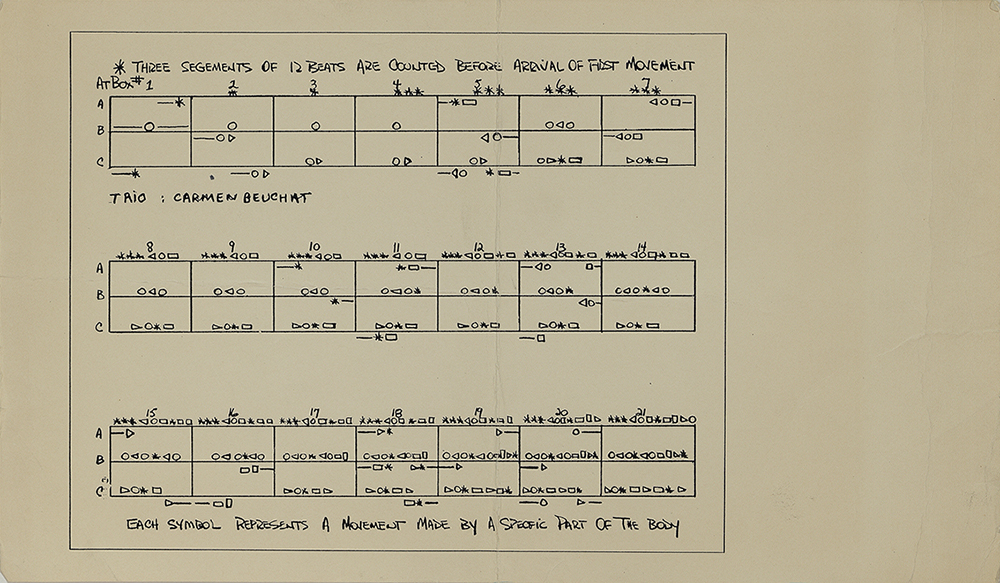 * THREE SEGEMENTS OF 12 BEATS ARE COUNTED BEFORE ARRIVAL OF FIRST MOVEMENT
AT BOX #1 2 3 4 5 6 7
A
B
C
TRIO : CARMEN BEUCHAT
8 9 10 11 12 13 14
A
B
C
15 16 17 18 19 20 21
A
B
C
EACH SYMBOL REPRESENTS A MOVEMENT MADE BY A SPECFIC PART OF THE BODY